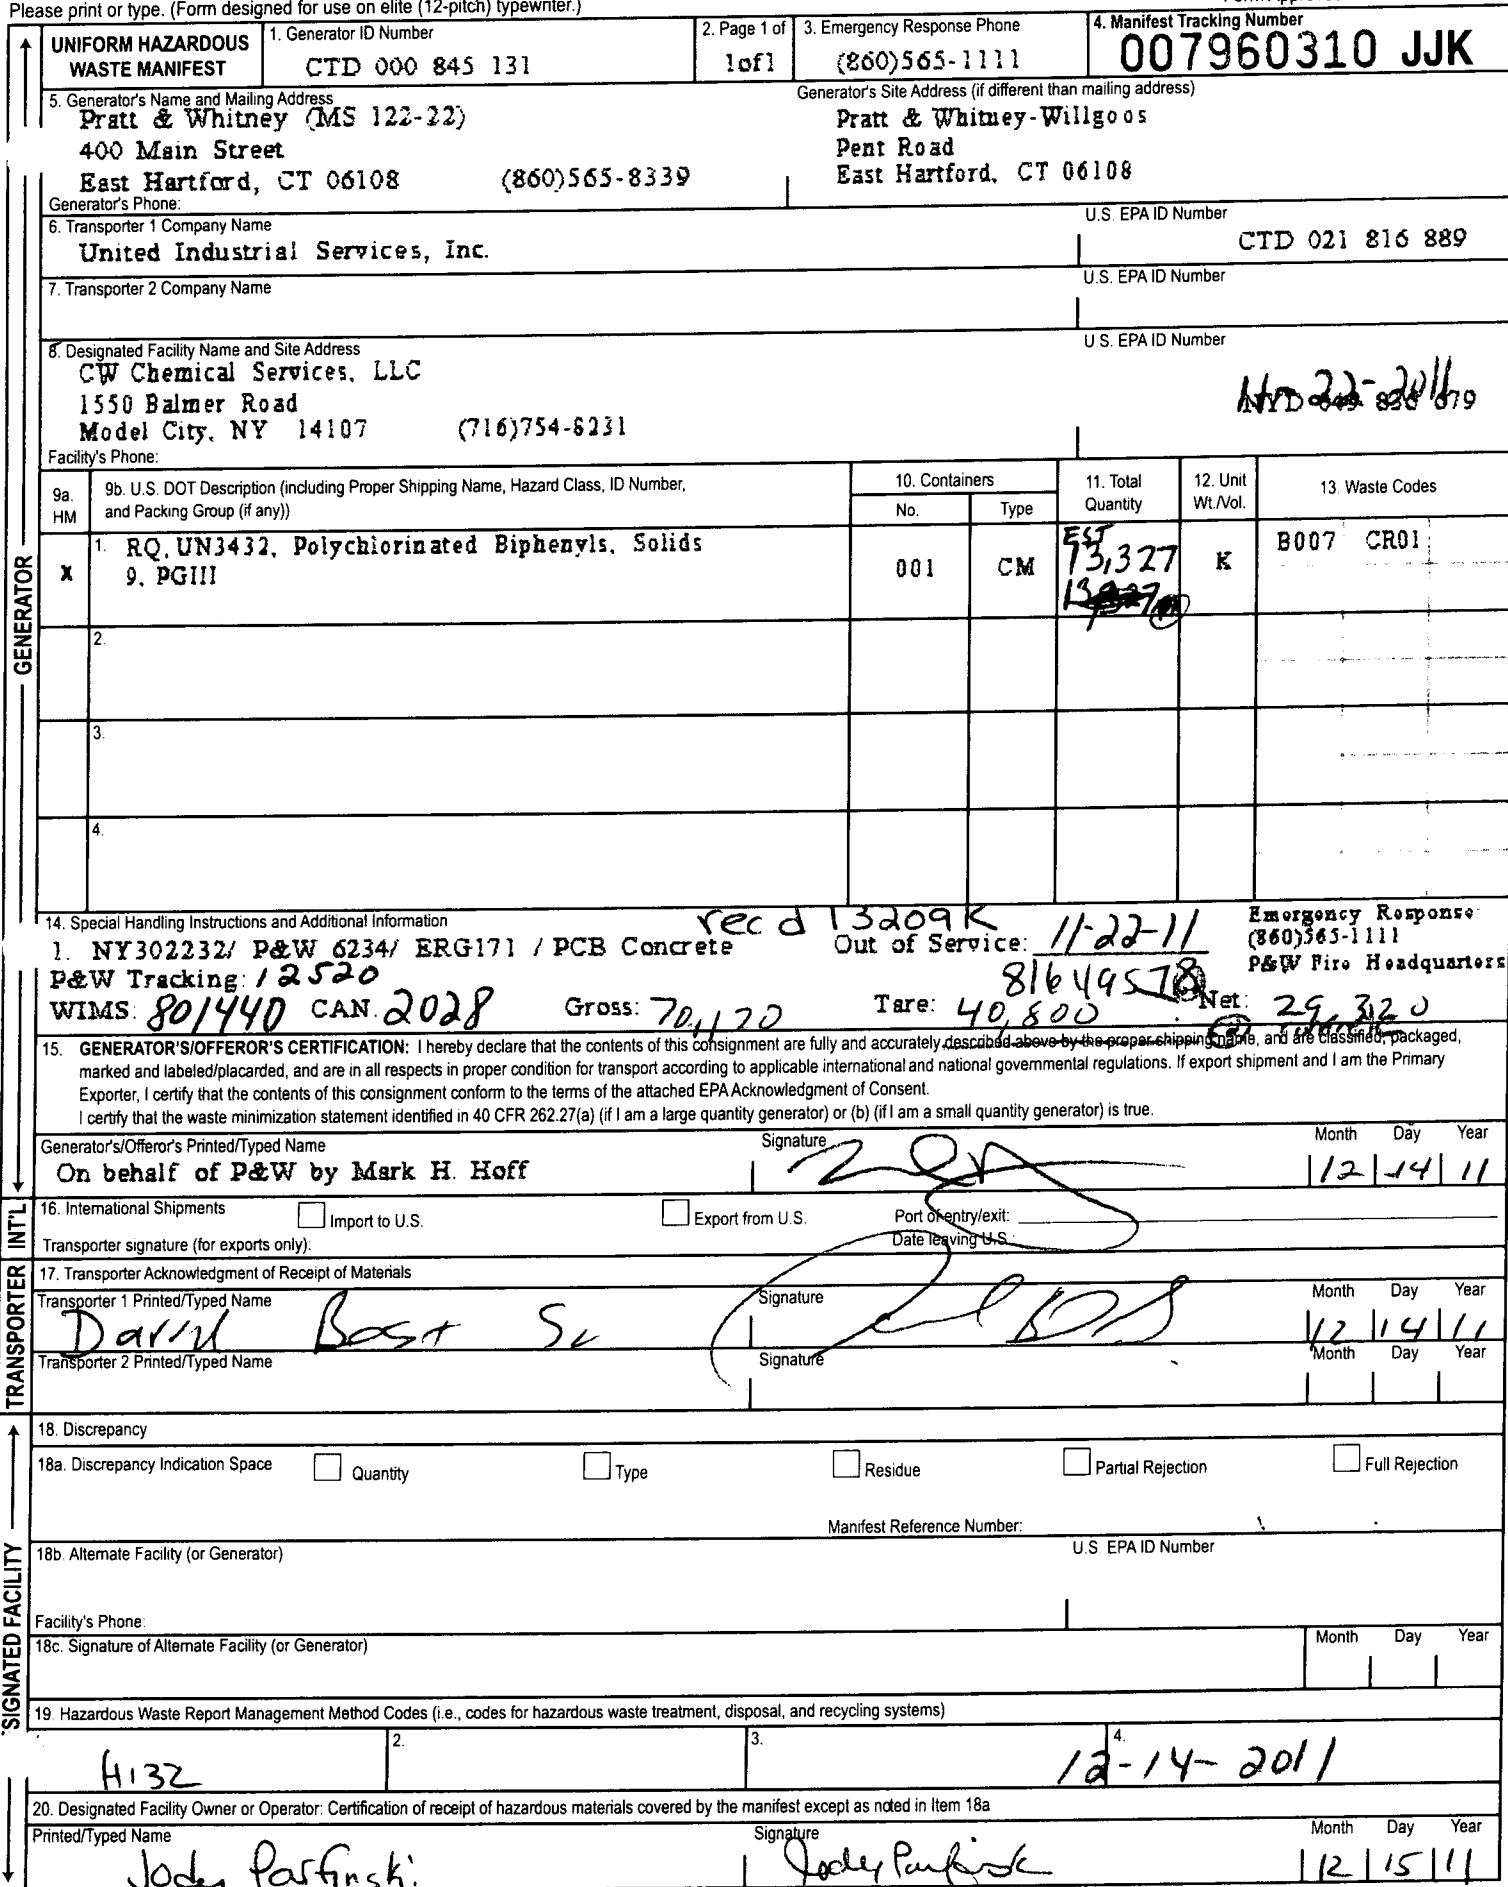 Please print or type. (Form designed for use on elite (12-pitch) typewriter.)
UNIFORM HAZARDOUS
WASTE MANIFEST
1. Generator ID Number
CTD 000 845 131
2. Page 1 of
1of1
3. Emergency Response Phone
(860)565-1111
4. Manifest Tracking Number
007960310 JJK
5. Generator's Name and Mailing Address
Pratt & Whitney (MS 122-22)
400 Main Street
East Hartford, CT 06108 (860)565-8339
Generator's Phone:
Generator's Site Address (if different than mailing address)
Pratt & Whitney-Willgoos
Pent Road
East Hartford, CT 06108
6. Transporter 1 Company Name
United Industrial Services, Inc.
U.S. EPA ID Number
CTD 021 816 889
7. Transporter 2 Company Name
U.S. EPA ID Number
8. Designated Facility Name and Site Address
CW Chemical Services, LLC
1550 Balmer Road
Model City, NY 14107 (716)754-8231
Facility's Phone:
U.S. EPA ID Number
22-2011
9a.
HM
9b. U.S. DOT Description (including Proper Shipping Name, Hazard Class, ID Number,
and Packing Group (if any))
10. Containers
No.
Type
11. Total
Quantity
12. Unit
Wt./Vol.
13. Waste Codes
X
1. RQ, UN3432, Polychlorinated Biphenyls, Solids
9, PGIII
001
CM
EST
13,327
K
B007 CR01
2.
3.
4.
GENERATOR
14. Special Handling Instructions and Additional Information
rec d 13209K
1. NY302232/ P&W 6234/ ERG171 / PCB Concrete
Out of Service: 11-22-11
Emergency Response:
(860)565-1111
P&W Fire Headquarters
P&W Tracking: 12520
81649578
WIMS: 801440 CAN. 2028 Gross: 70,120 Tare: 40,800 Net: 29,320
15. GENERATOR'S/OFFEROR'S CERTIFICATION: I hereby declare that the contents of this consignment are fully and accurately described above by the proper shipping name, and are classified, packaged,
marked and labeled/placarded, and are in all respects in proper condition for transport according to applicable international and national governmental regulations. If export shipment and I am the Primary
Exporter, I certify that the contents of this consignment conform to the terms of the attached EPA Acknowledgment of Consent.
I certify that the waste minimization statement identified in 40 CFR 262.27(a) (if I am a large quantity generator) or (b) (if I am a small quantity generator) is true.
Generator's/Offeror's Printed/Typed Name
On behalf of P&W by Mark H. Hoff
Signature
Month Day Year
12 14 11
INT'L
16. International Shipments
Import to U.S.
Export from U.S.
Port of entry/exit:
Transporter signature (for exports only):
Date leaving U.S.:
TRANSPORTER
17. Transporter Acknowledgment of Receipt of Materials
Transporter 1 Printed/Typed Name
Signature
Month Day Year
12 14 11
Transporter 2 Printed/Typed Name
Signature
Month Day Year
18. Discrepancy
18a. Discrepancy Indication Space
Quantity
Type
Residue
Partial Rejection
Full Rejection
Manifest Reference Number:
18b. Alternate Facility (or Generator)
U.S. EPA ID Number
Facility's Phone:
SIGNATED FACILITY
18c. Signature of Alternate Facility (or Generator)
Month Day Year
19. Hazardous Waste Report Management Method Codes (i.e., codes for hazardous waste treatment, disposal, and recycling systems)
H132
2.
3.
4.
12-14-2011
20. Designated Facility Owner or Operator: Certification of receipt of hazardous materials covered by the manifest except as noted in Item 18a
Printed/Typed Name
Signature
Month Day Year
Jody
12 15 11